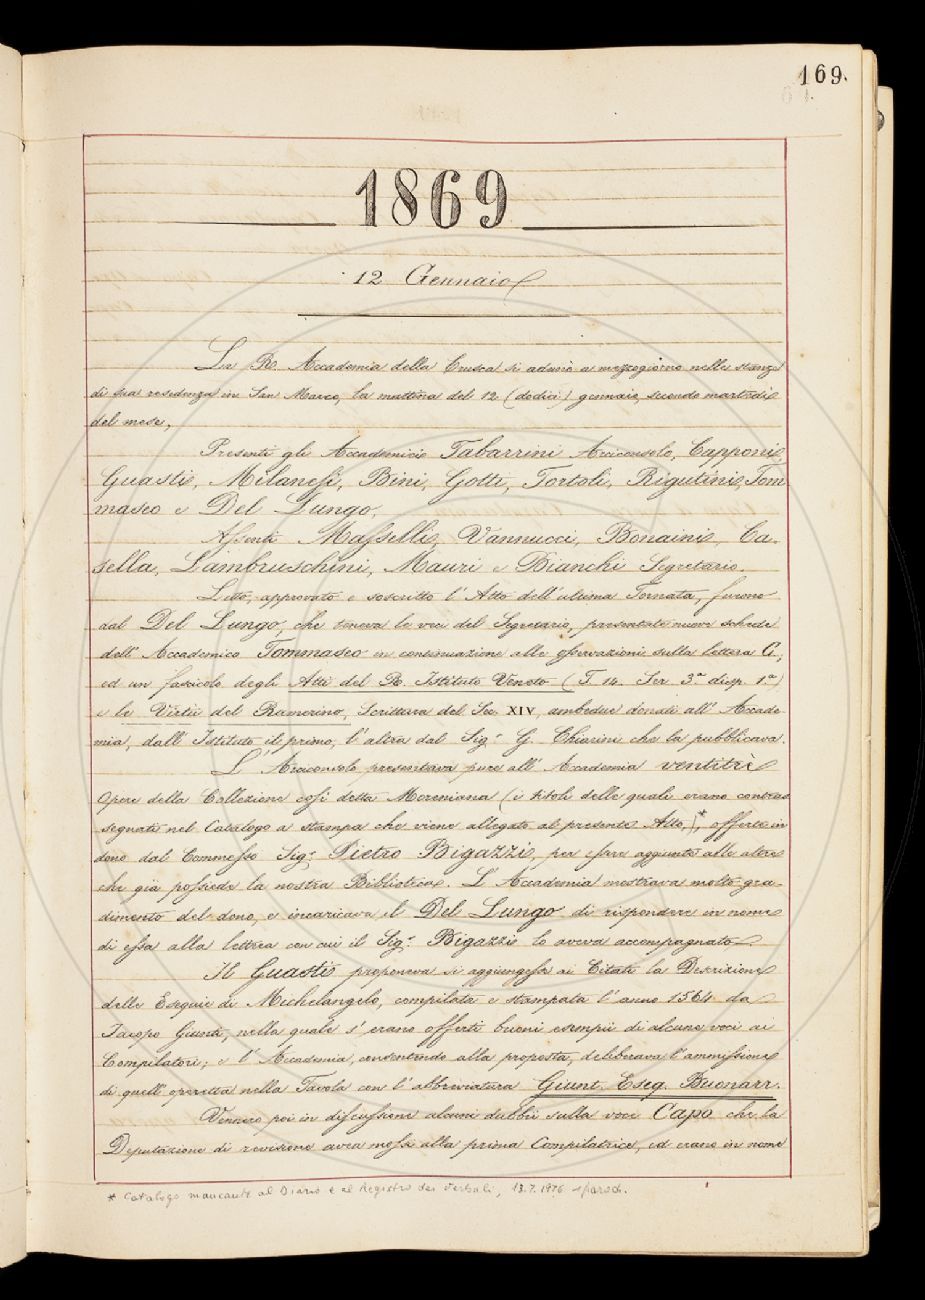 169.
1869
12 Gennaio
La R. Accademia della Crusca si adunò a mezzogiorno nelle stanze
di sua residenza in San Marco, la mattina del 12 (dodici) gennaio, secondo martedì
del mese,
Presenti gli Accademici Tabarrini Arciconsolo, Capponi,
Guasti, Milanesi, Bini, Gotti, Tortoli, Rigutini, Tom
maseo e Del Lungo,
Assenti Masselli, Vannucci, Bonaini, Ca-
sella, Lambruschini, Mauri e Bianchi Segretario.
Letto, approvato e soscritto l'Atto dell'ultima Tornata, furono
dal Del Lungo, che teneva le veci del Segretario, presentate nuove schede
dell'Accademico Tommaseo in continuazione alle osservazioni sulla lettera C,
ed un fascicolo degli Atti del R. Istituto Veneto (T. 14. Ser 3ª disp. 1ª)
e le Virtù del Ramerino, Scrittura del Sec. XIV, ambedue donati all'Accade-
mia, dall'Istituto il primo, l'altra dal Sig.r G. Chiarini che la pubblicava.
L'Arciconsolo presentava pure all'Accademia ventitrè
Opere della Collezione così detta Moreniana (i titoli delle quali erano contras
segnati nel Catalogo a stampa che viene allegato al presente Atto,)* offerte in
dono dal Commesso Sig.r Pietro Bigazzi, per essere aggiunte alle altre
che già possiede la nostra Biblioteca. L'Accademia mostrava molto gra-
dimento del dono, e incaricava il Del Lungo di rispondere in nome
di essa alla lettera con cui il Sig.r Bigazzi lo aveva accompagnato.
Il Guasti proponeva si aggiungesse ai Citati la Descrizione
delle Esequie di Michelangelo, compilata e stampata l'anno 1564 da
Jacopo Giunti, nella quale s'erano offerti buoni esempii di alcune voci ai
Compilatori; e l'Accademia consentendo alla proposta, deliberava l'ammissione
di quell'operetta nella Tavola con l'abbreviatura Giunt. Eseq. Buonarr.
Vennero poi in discussione alcuni dubbii sulla voce Capo che la
Deputazione di revisione avea mossi alla prima Compilatrice, ed erano in nome
* Catalogo mancante al Diario e al Registro dei Verbali, 13.7.1976